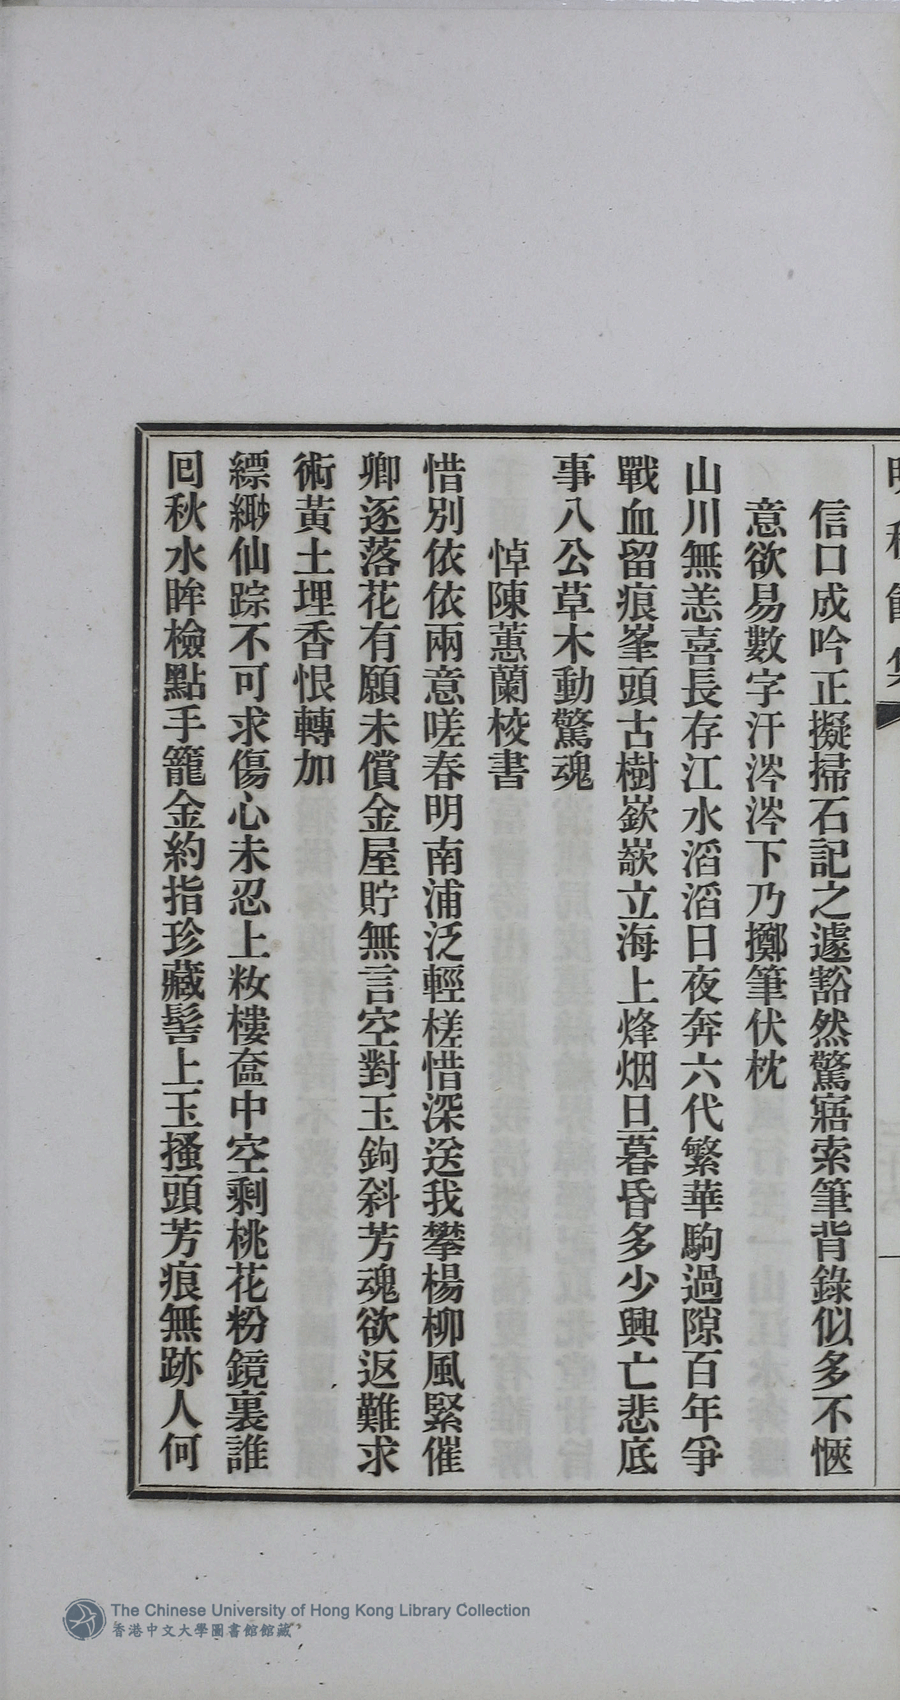 信口成吟正擬掃石記之遽豁然驚寤索筆背錄似多不愜
意欲易數字汗涔涔下乃擲筆伏枕
山川無恙喜長存江水滔滔日夜奔六代繁華駒過隙百年爭
戰血留痕峯頭古樹嶔嶔立海上烽烟旦暮昏多少興亡悲底
事八公草木動驚魂
悼陳蕙蘭校書
惜別依依兩意嗟春明南浦泛輕槎惜深送我攀楊柳風緊催
卿逐落花有願未償金屋貯無言空對玉鉤斜芳魂欲返難求
術黃土埋香恨轉加
縹緲仙踪不可求傷心未忍上妝樓奩中空剩桃花粉鏡裏誰
回秋水眸檢點手籠金約指珍藏髻上玉搔頭芳痕無跡人何
The Chinese University of Hong Kong Library Collection
香港中文大學圖書館館藏